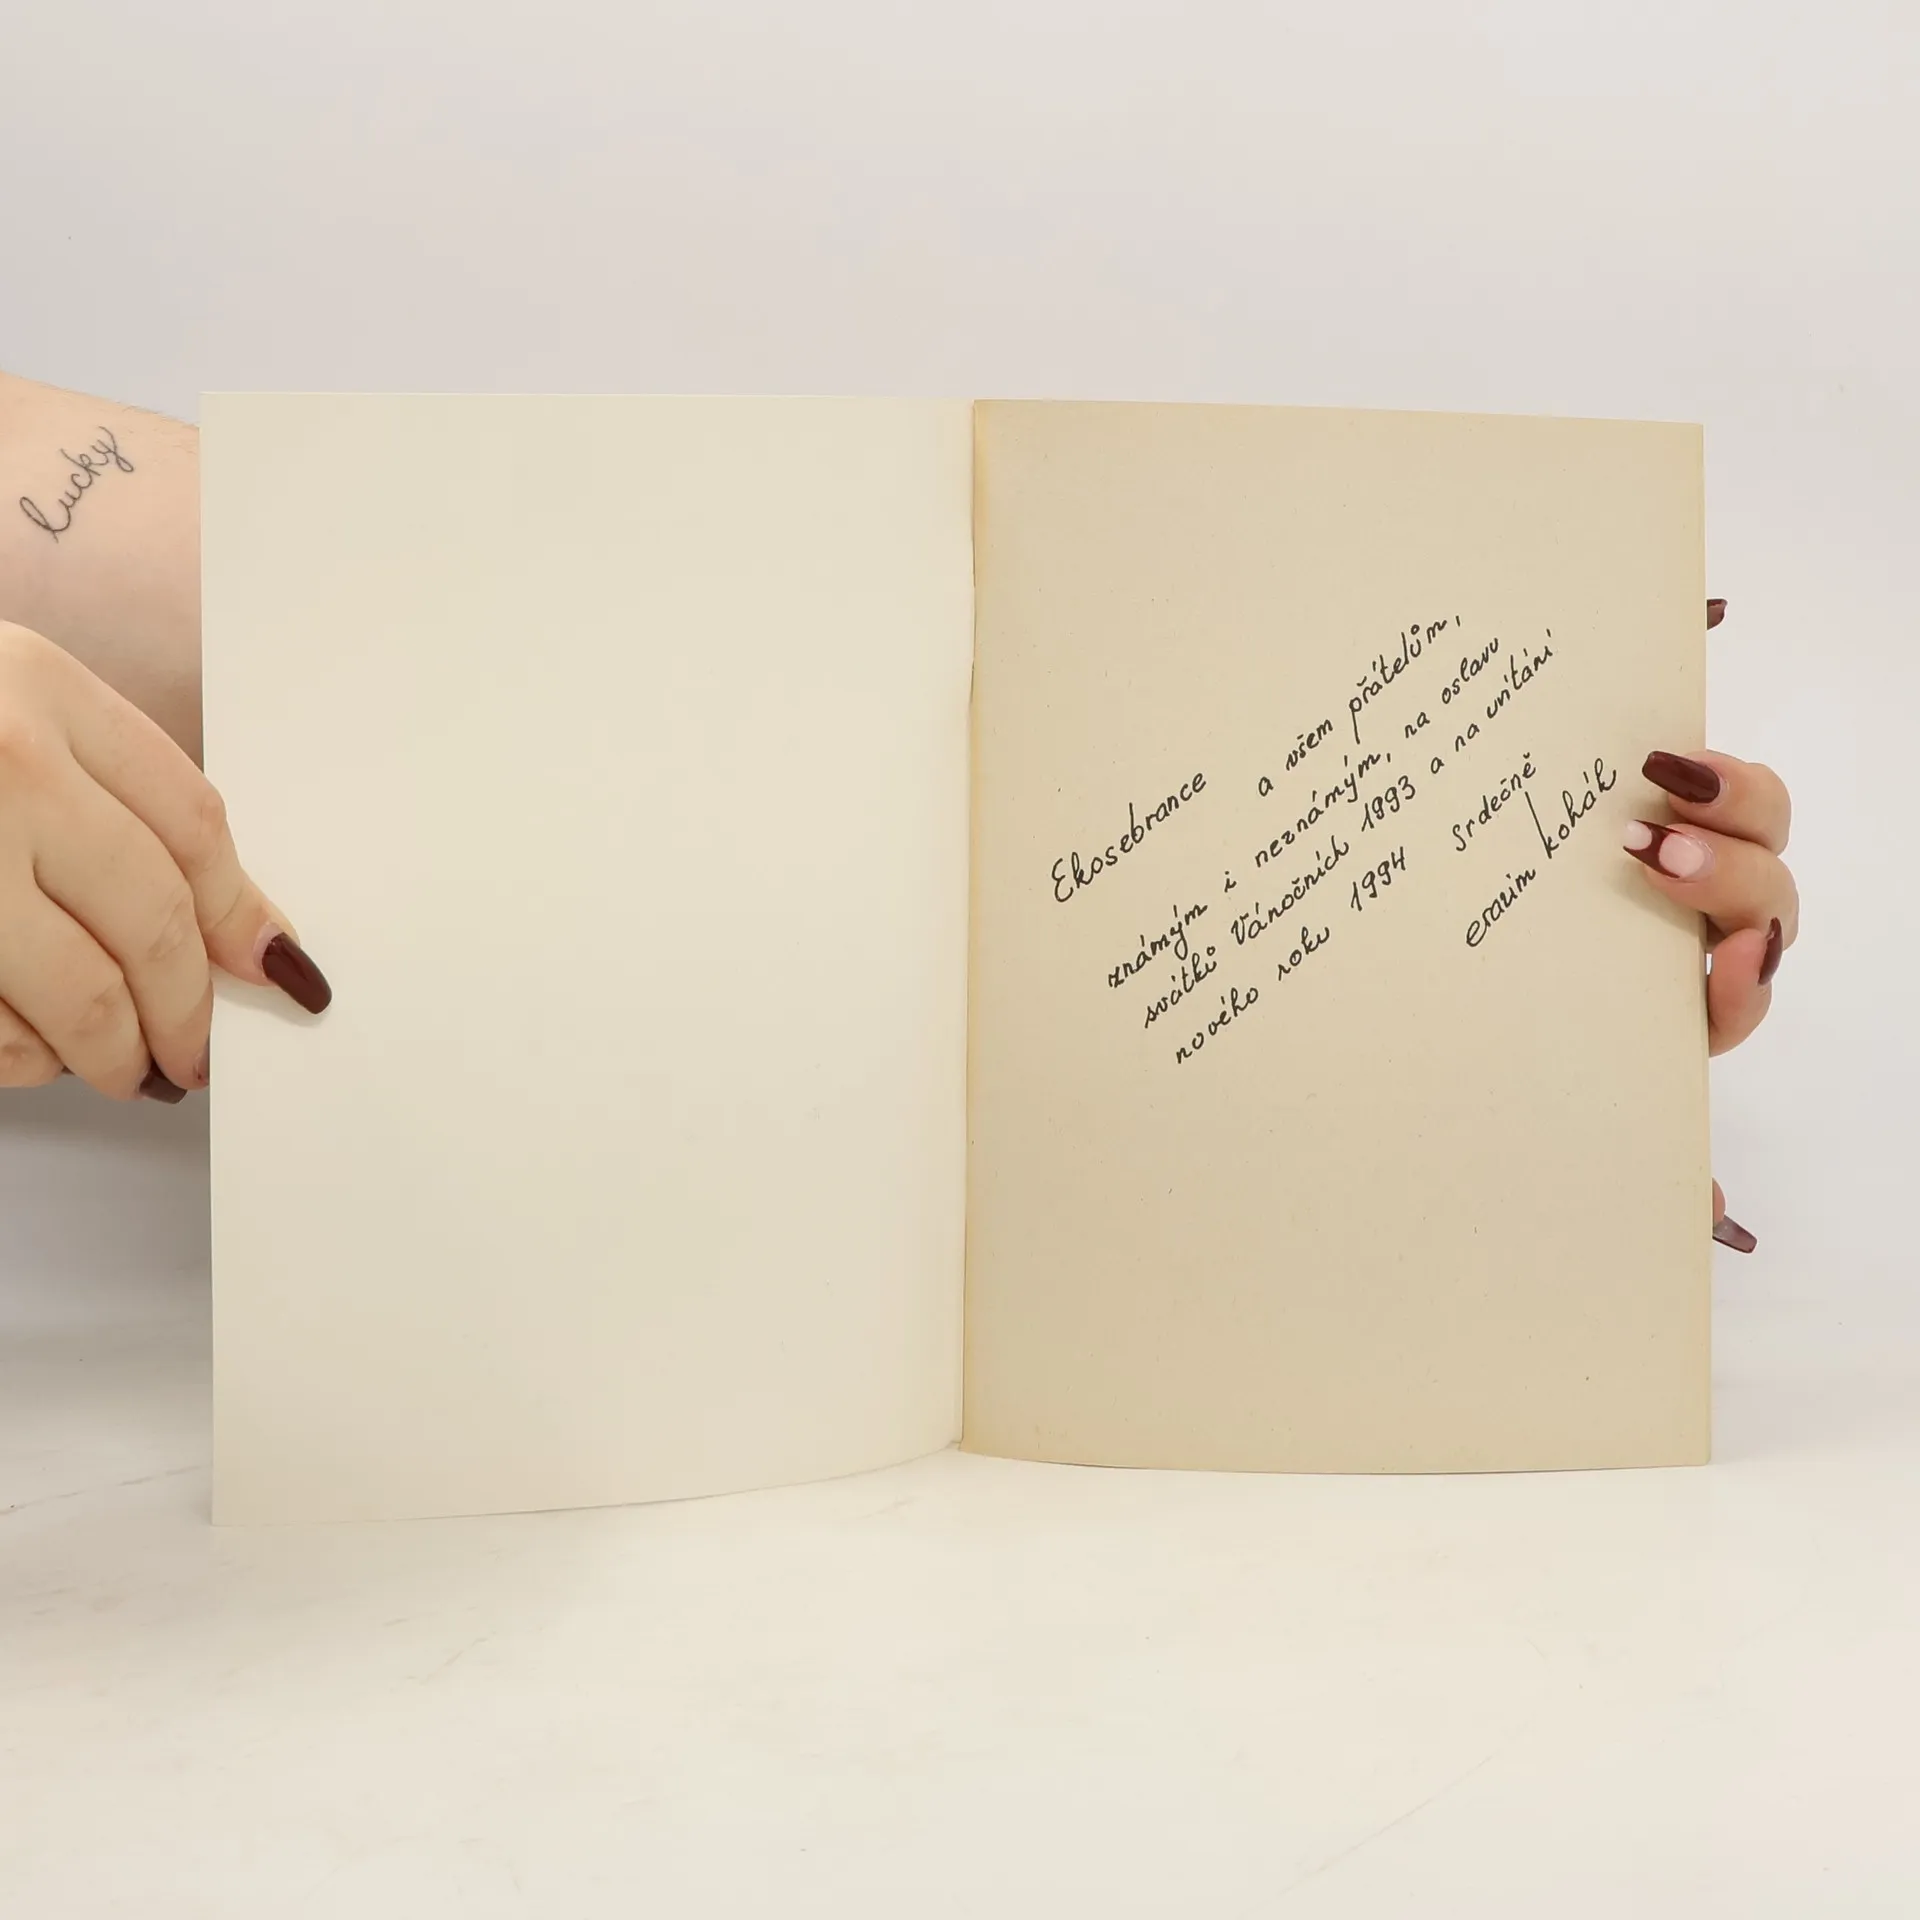 lucky
Ekosebrance a všem přátelům,
známým i neznámým, na oslavu
svátků Vánočních 1993 a na uvítání
nového roku 1994 Srdečně
erazim kohák